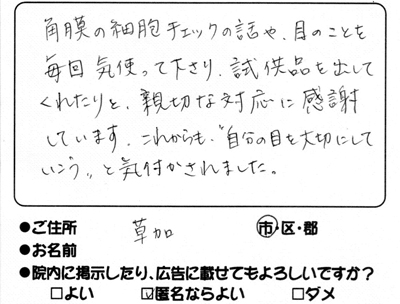 角膜の細胞チェックの話や、目のことを
毎回気使って下さり、試供品を出して
くれたりと、親切な対応に感謝
しています。これからも、“自分の目を大切にして
いこう〟と気付かされました。
●ご住所 草加 市・区・郡
●お名前
●院内に掲示したり、広告に載せてもよろしいですか？
□よい ☑匿名ならよい □ダメ